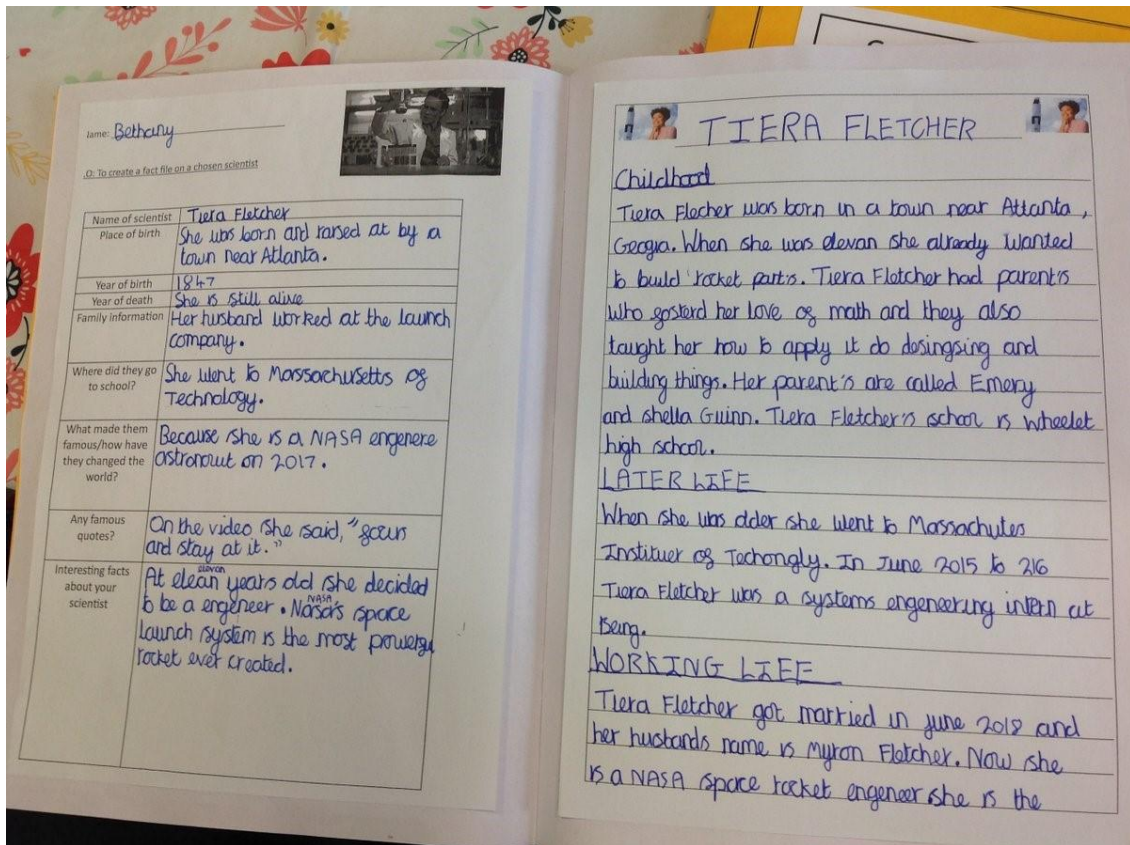 Name: Bethany
LO: To create a fact file on a chosen scientist
Name of scientist Tiera Fletcher
Place of birth She was born and raised at by a
town near Atlanta.
Year of birth 1847
Year of death She is still alive
Family information Her husband worked at the launch
company.
Where did they go
to school?
She went to Massachusetts of
Technology.
What made them
famous/how have
they changed the
world?
Because she is a NASA engenere
astronout on 2017.
Any famous
quotes?
On the video she said, "focus
and stay at it."
Interesting facts
about your
scientist
elevan
At elean years old she decided
to be a engeneer. Nasa's space
NASA
launch system is the most powerful
rocket ever created.
TIERA FLETCHER
Childhood
Tiera Flecher was born in a town near Atlanta,
Geogia. When she was elevan she already wanted
to build rocket part's. Tiera Fletcher had parent's
who fosterd her love of math and they also
taught her how to apply it do desingsing and
building things. Her parent's are called Emery
and shella Guinn. Tiera Fletcher's school is wheelet
high school.
LATER LIFE
When she was older she went to Massachutes
Instituer of Techongly. In June 2015 to 216
Tiera Fletcher was a systems engeneering intern at
Being.
WORKING LIFE
Tiera Fletcher got married in june 2018 and
her husbands name is Myron Fletcher. Now she
is a NASA space rocket engeneer she is the